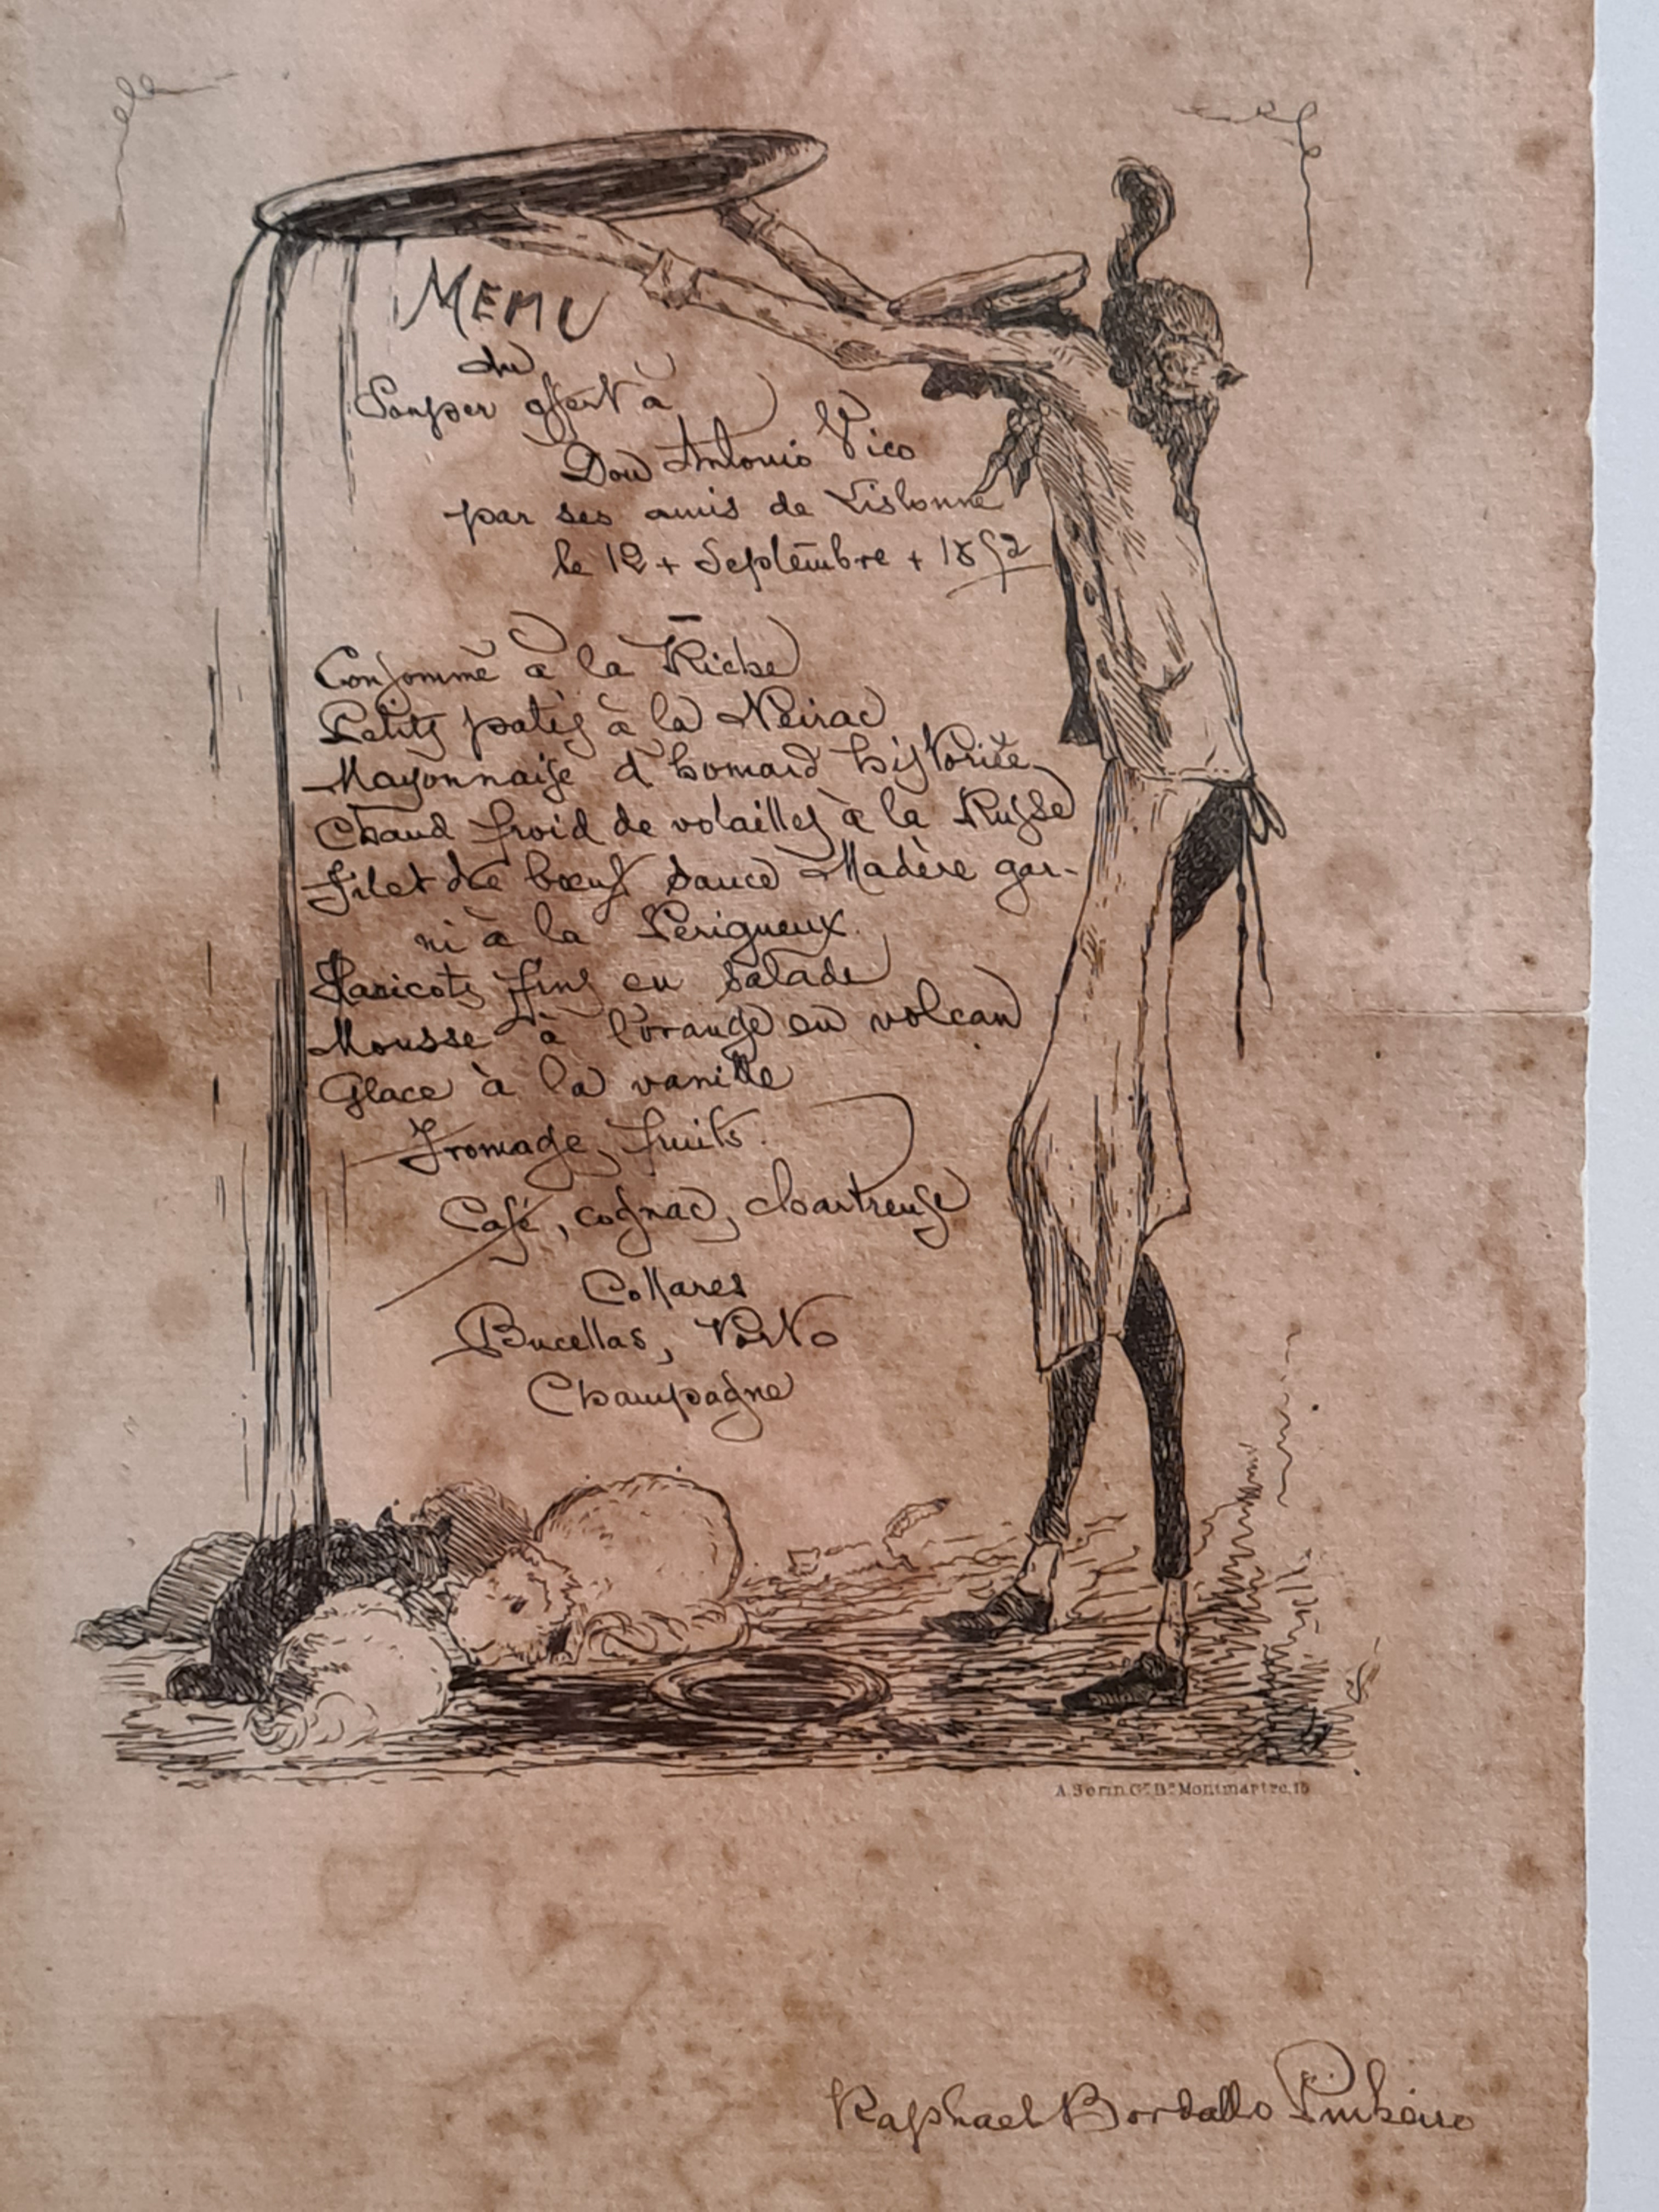 MENU
du
Souper offert à
Don Antonio Vico
par ses amis de Lisbonne
le 12 + Septembre +
Consommé à la Riche
Petits patés à la Neirac
Mayonnaise d'homard historiée
Chaud froid de volailles à la Russe
Filet de bœuf sauce Madère gar-
ni à la Perigueux.
Haricots fins en salade
Mousse à l'orange en volcan
Glace à la vanille
Fromage, fruits.
Café, cognac, chartreuse
Collares
Bucellas, Porto
Champagne
A. Sorin Gr. Bd. Montmartre, 15
Raphael Bordallo Pinheiro